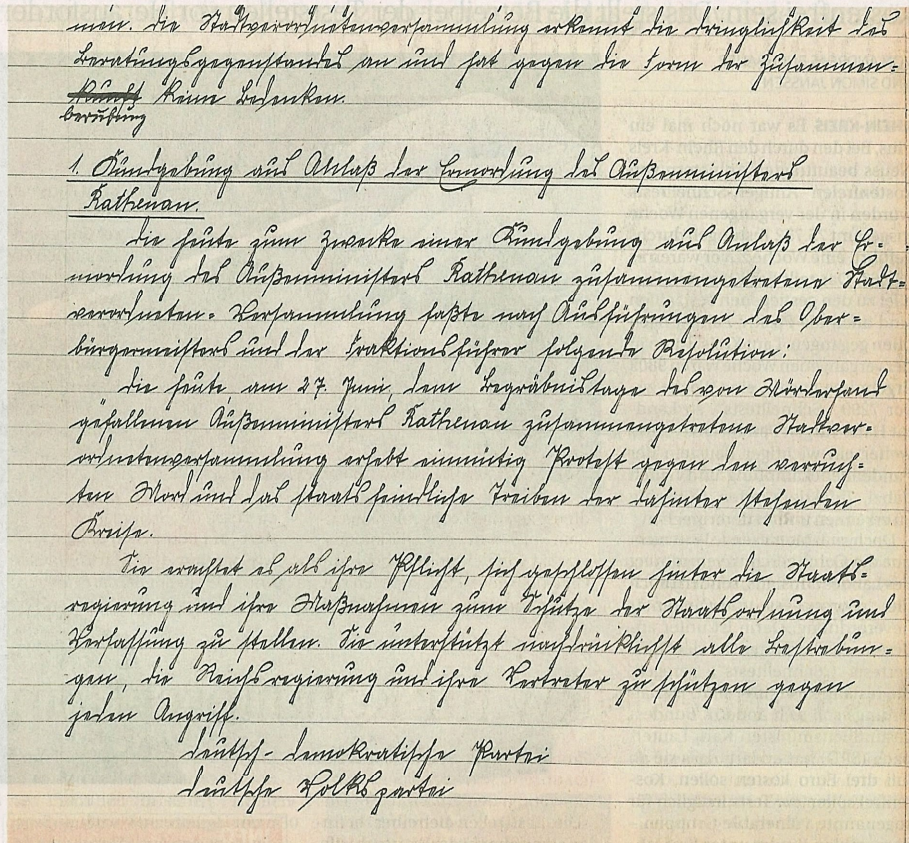 men. Die Stadtverordnetenversammlung erkennt die Dringlichkeit des
Beratungsgegenstandes an und hat gegen die Form der Zusammen=
kunft keine Bedenken.
berufung
1. Kundgebung aus Anlaß der Ermordung des Außenministers
Rathenau.
Die heute zum Zwecke einer Kundgebung aus Anlaß der Er=
mordung des Außenministers Rathenau zusammengetretene Stadt=
verordneten=Versammlung faßte nach Ausführungen des Ober=
bürgermeisters und der Fraktionsführer folgende Resolution:
„Die heute, am 27. Juni, dem Begräbnistage des von Mörderhand
gefallenen Außenministers Rathenau zusammengetretene Stadtver=
ordnetenversammlung erhebt einmütig Protest gegen den verruch=
ten Mord und das staatsfeindliche Treiben der dahinter stehenden
Kreise.
Sie erachtet es als ihre Pflicht, sich geschlossen hinter die Staats=
regierung und ihre Maßnahmen zum Schutze der Staatsordnung und
Verfassung zu stellen. Sie unterstützt nachdrücklichst alle Bestrebun=
gen, die Reichsregierung und ihre Vertreter zu schützen gegen
jeden Angriff.
Deutsch-demokratische Partei
Deutsche Volkspartei